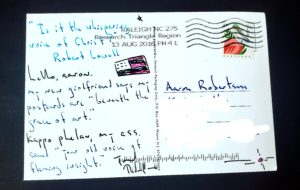 "Is it the whispering
voice of Christ?"
Robert Lowell
Hello, Aaron.
my new girlfriend says my
postcards are "beneath the
grace of art."
Kappa phelaw, my ass.
send "your old voice of
flaming insight."
RALEIGH NC 275
Research Triangle Region
13 AUG 2016 PM 4 L
Aaron Robertson